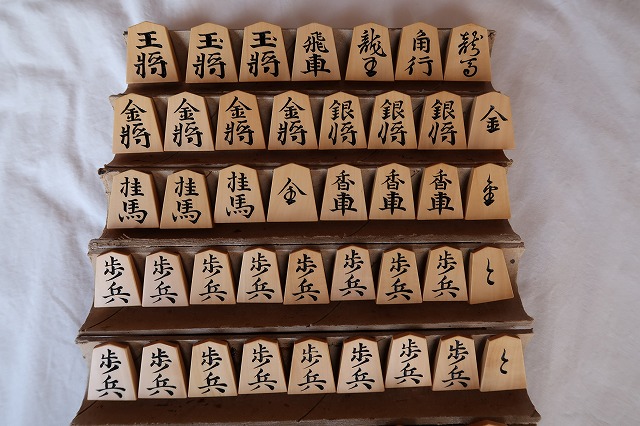 王将 玉将 玉将 飛車 龍王 角行 龍馬
金将 金将 金将 金将 銀将 銀将 銀将 金
桂馬 桂馬 桂馬 金 香車 香車 香車 金
歩兵 歩兵 歩兵 歩兵 歩兵 歩兵 歩兵 歩兵 と
歩兵 歩兵 歩兵 歩兵 歩兵 歩兵 歩兵 歩兵 と